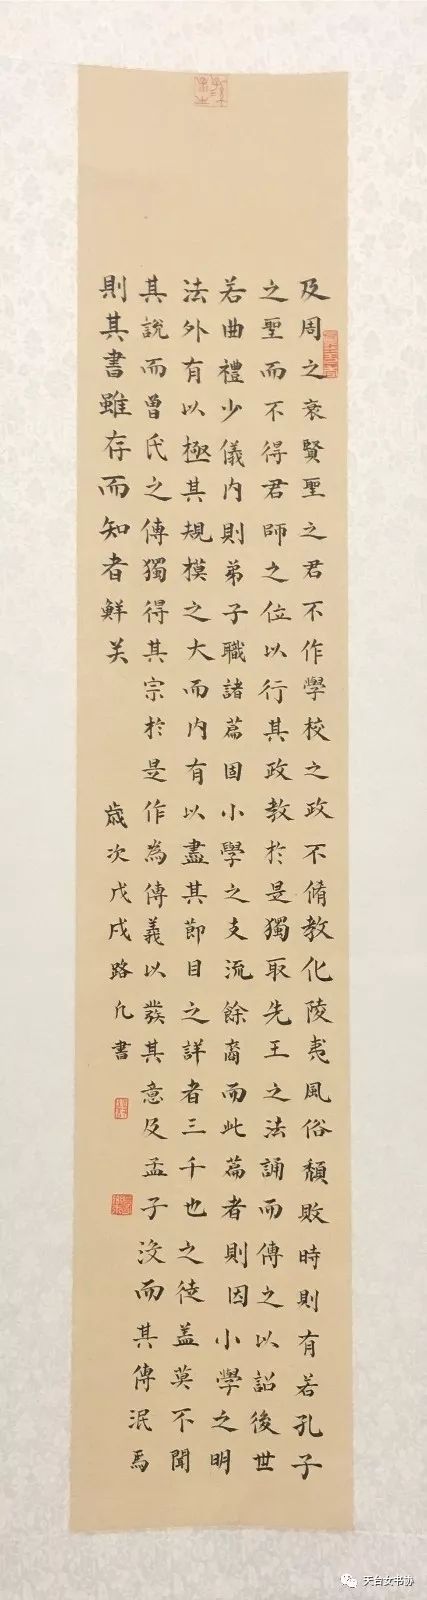 及周之衰賢聖之君不作學校之政不脩教化陵夷風俗頹敗時則有若孔子
之聖而不得君師之位以行其政教於是獨取先王之法誦而傳之以詔後世
若曲禮少儀內則弟子職諸篇固小學之支流餘裔而此篇者則因小學之明
法外有以極其規模之大而內有以盡其節目之詳者三千也之徒蓋莫不聞
其說而曾氏之傳獨得其宗於是作為傳義以發其意及孟子沒而其傳泯焉
則其書雖存而知者鮮矣
歲次戊戌路凡書
天台女书协